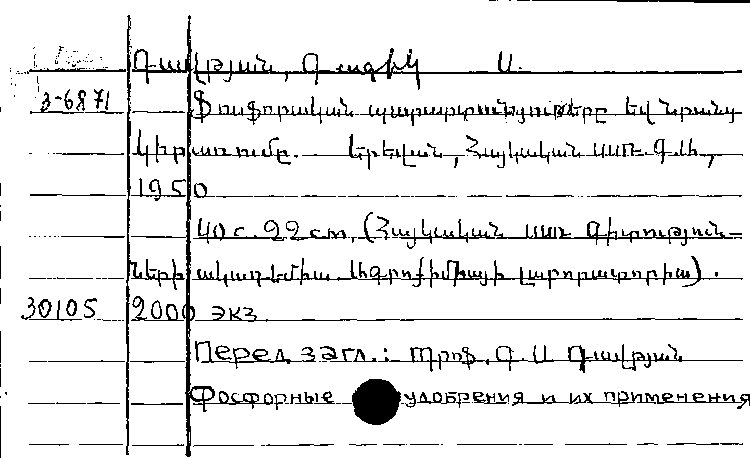 Դավթյան, Գագիկ Ս.
3-6871 Ֆոսֆորական պարարտանյութերը եվ նրանց
կիրառումը. Երեվան, Հայկական ՍՍՌ ԳԱ,
1950
40 с. 22 см. (Հայկական ՍՍՌ Գիտություն-
ների ակադեմիա Ագրոքիմիայի լաբորատորիա).
30105 2000 экз
Перед загл.: Պրոֆ. Գ. Ս Դավթյան
Фосфорные удобрения и их применения